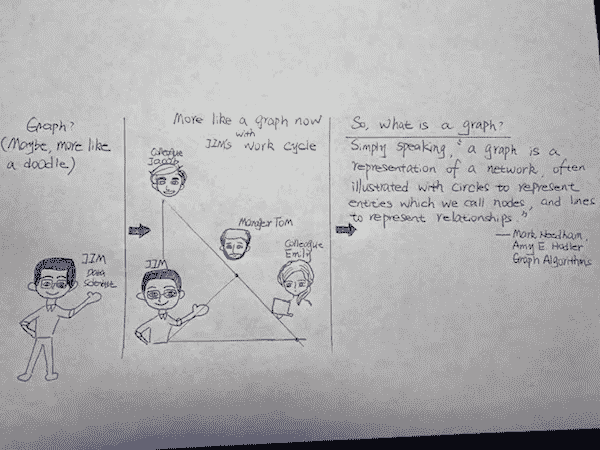 Graph?
(Maybe, more like
a doodle.)
JIM
Data
Scientist
More like a graph now
with
JIM's work cycle
Colleague
Jacob
Manager Tom
Colleague
Emily
JIM
So, what is a graph?
Simply speaking, "a graph is a
representation of a network, often
illustrated with circles to represent
entities which we call nodes, and lines
to represent relationships."
— Mark Needham,
Amy E. Hodler
Graph Algorithms